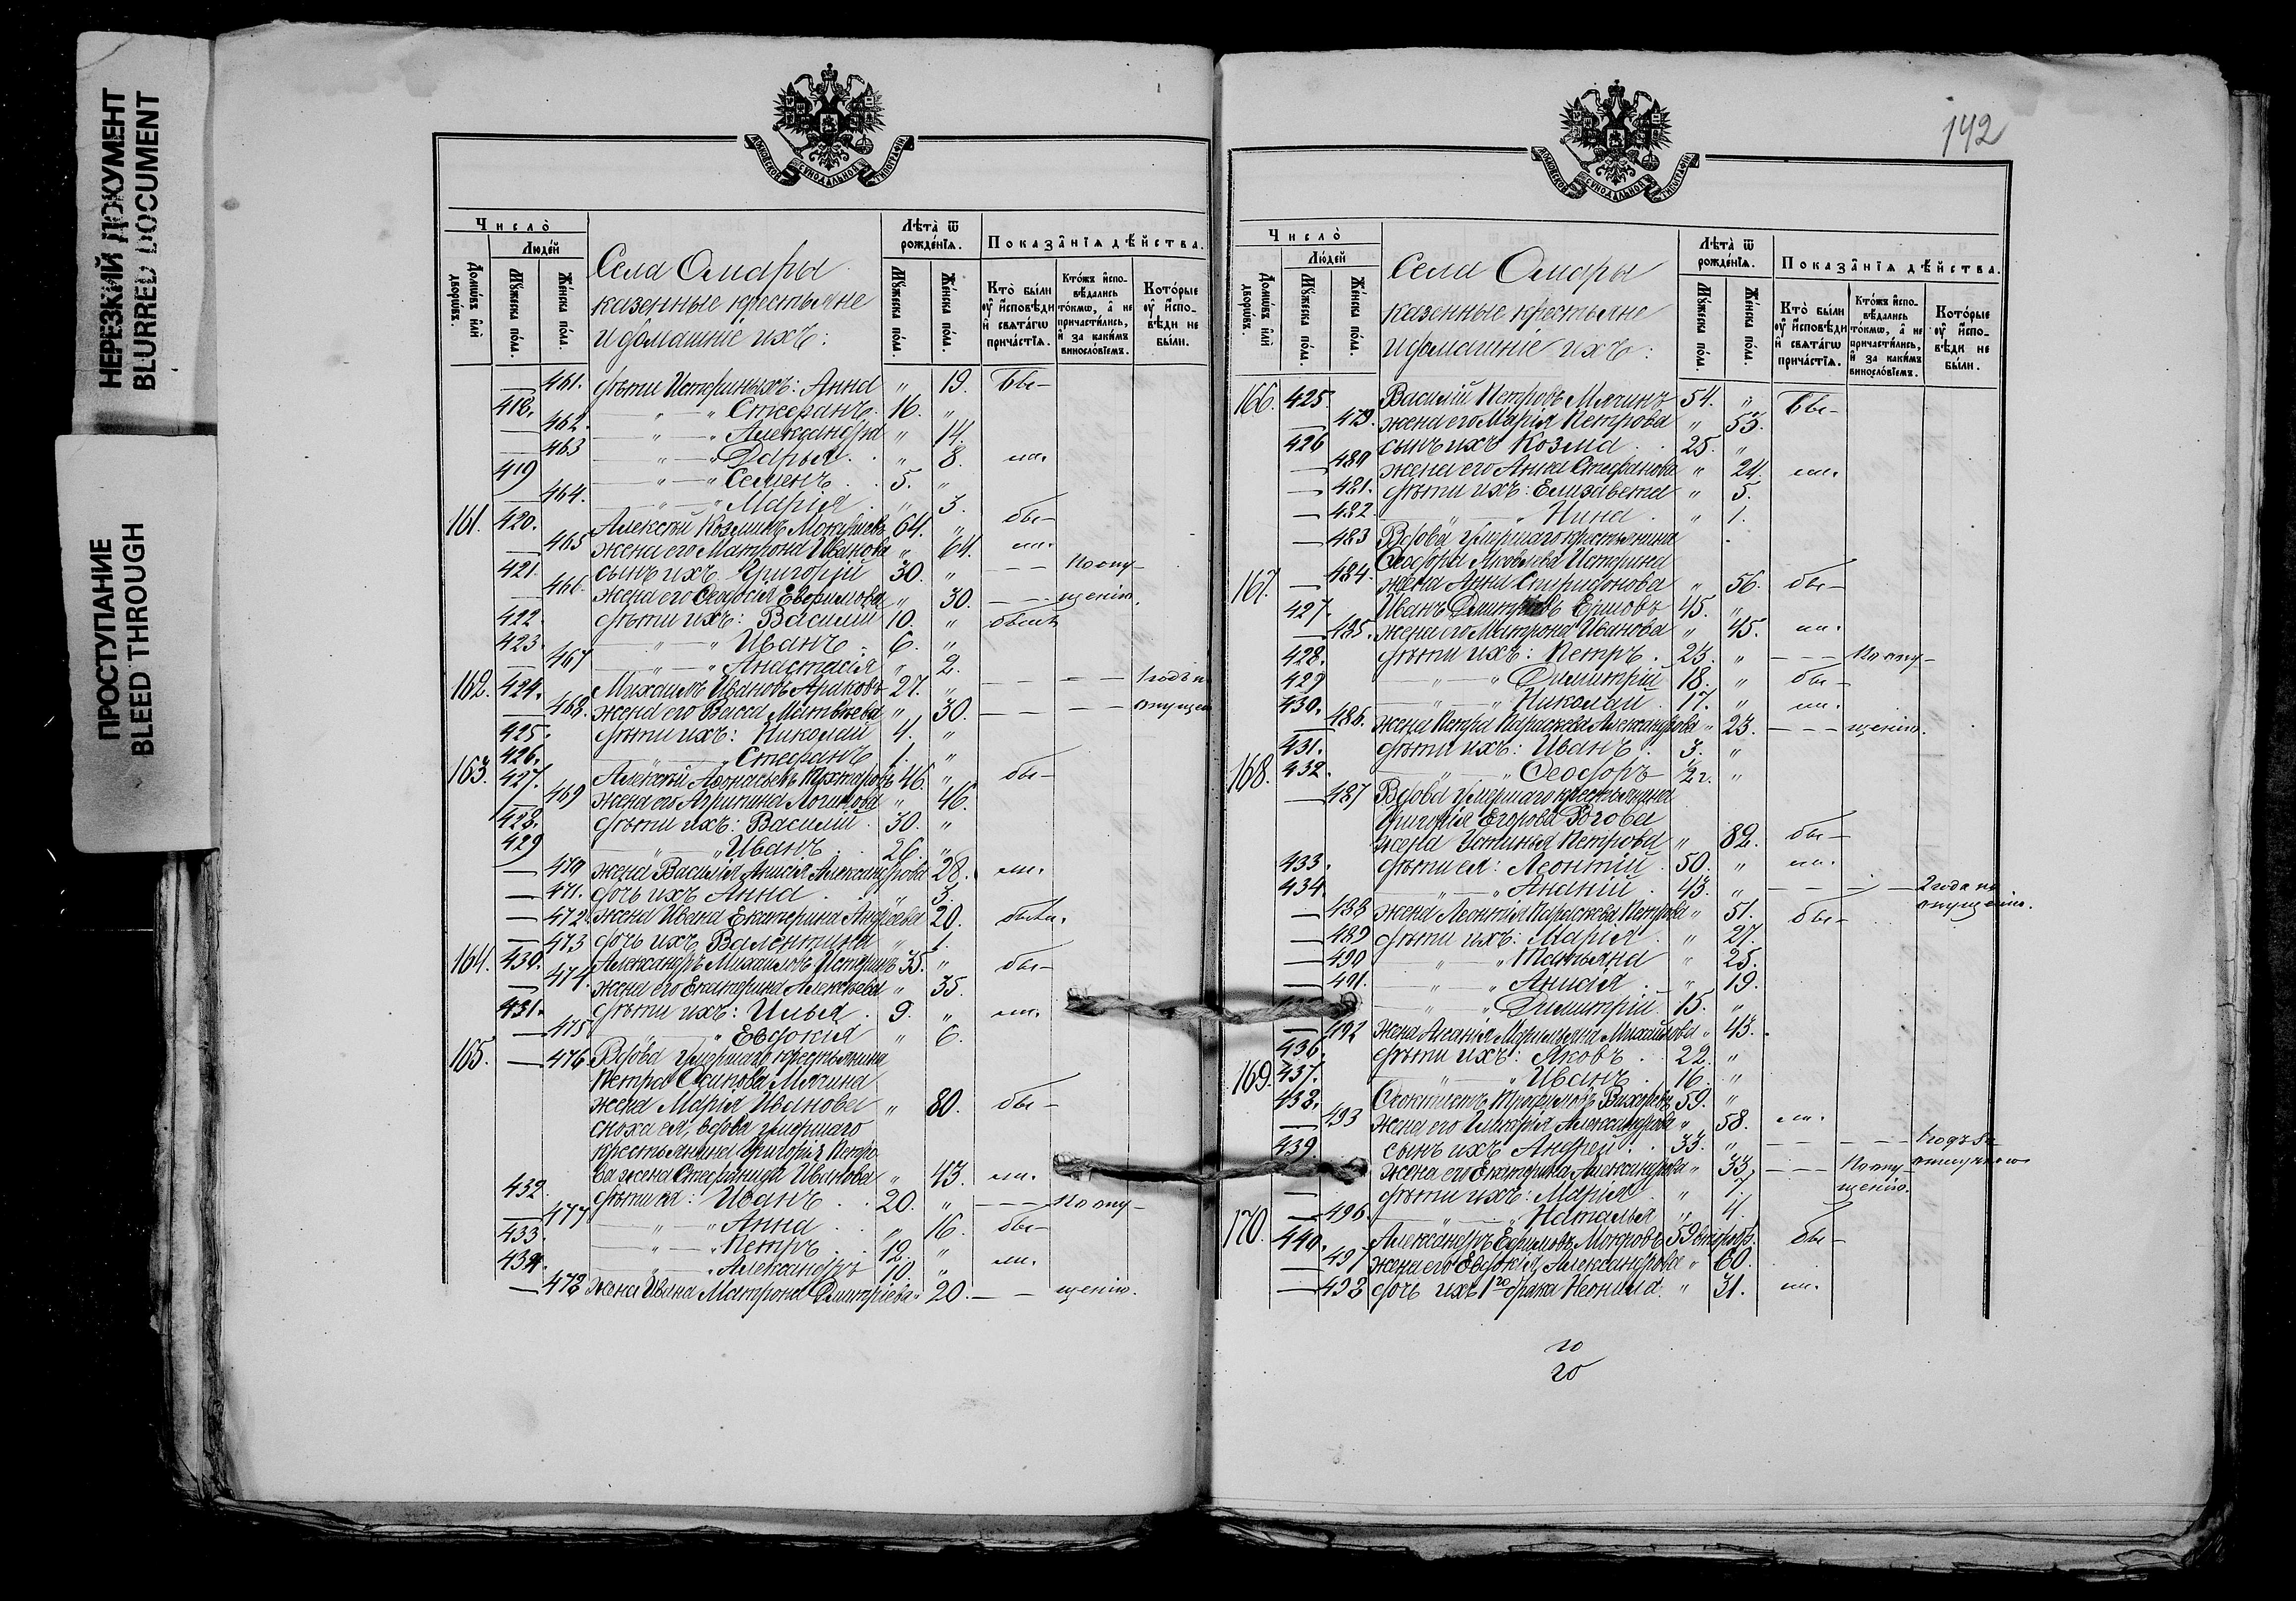 НЕРЕЗКИЙ ДОКУМЕНТ
BLURRED DOCUMENT
ПРОСТУПАНИЕ
BLEED THROUGH
МОСКОВСКОЙ СѴНОДАЛЬНОЙ ТИПОГРАФІИ
Число̀
Людéй
Домѡ́въ и҆лѝ дворѡ́въ.
Мꙋ́жеска по́ла.
Же́нска по́ла.
Села Омары
казенные крестьяне
и домашніе ихъ:
Лѣта̀ ѿ рожде́нїѧ.
Мꙋ́жеска по́ла.
Же́нска по́ла.
Показа̂нїѧ дѣ́йства.
Кто̀ бы́ли ᲂу҆ и҆сповѣди и҆ свѧта́гѡ прича́стїѧ.
Кто́жъ и҆спо-вѣдались то́кмѡ, а҆ не причасти́лись, и҆ за каки́мъ винословїемъ.
Кото́рые ᲂу҆ и҆спо-вѣди не бы́ли.
— 461. дѣти Истрныхъ: Анна " 19. бы-
418. " — " Стефанъ. 16. "
— 462. " — " Александра " 14.
— 463 " — " Дарья. " 8. ли.
419 " — " Семенъ. 5. "
— 464. " — " Марія. " 3.
161. 420. Алексѣй Козминъ 64. " бы-
— 465 жена его Матрона Иванова " 64. ли.
421. сынъ ихъ Григорій 30. " — — — По опу-
— 466. жена его Ѳедосія Евфимова " 30. — — щенію.
422. дѣти ихъ: Василій 10. " были
423. " — " Иванъ. 6. "
— 467 " — " Анастасія " 2.
162. 424. Михаилъ Ивановъ 27. " — — — 1 годъ п
— 468. жена его Васса Матвѣева " 30. — — — опущен
425. дѣти ихъ: Николай 4. "
426. " Стефанъ 1. "
163. 427. Алексѣй Аѳонасьевъ 46. " бы-
— 469 жена его Агрипина Логинова " 46.
428. дѣти ихъ: Василій. 30. "
429 " — " Иванъ. 26. "
— 470 жена Василія Анисія Александрова 28. ли.
— 471. дочь ихъ Анна. " 3.
— 472 жена Ивана Екатерина Андреева 20. были.
— 473 дочь ихъ Валентина " 1.
164. 430. Александръ Михаиловъ 35. " бы-
— 474. жена его Екатерина Алексѣева " 35.
431. дѣти ихъ: Илья. 9. " ли.
— 475 " Евдокія " 6.
165. — 476 Вдова умершаго крестьянина
Петра Осипова Мягина
жена Марія Иванова " 80. бы-
сноха ея, вдова умершаго
крестьянина Григорія Петро-
ва жена Стефанида Иванова " 43. ли.
432. дѣти ея: Иванъ. 20. " — — По опу-
— 477 " — " Анна. " 16. бы-
433. " — " Петръ. 12. "
434. " — " Александръ 10. " ли.
— 478 жена Ивана Матрона Димитріева " 20. — — щенію.
142
МОСКОВСКОЙ СѴНОДАЛЬНОЙ ТИПОГРАФІИ
Число̀
Людéй
Домѡ́въ и҆лѝ дворѡ́въ.
Мꙋ́жеска по́ла.
Же́нска по́ла.
Села Омары
казенные крестьяне
и домашніе ихъ:
Лѣта̀ ѿ рожде́нїѧ.
Мꙋ́жеска по́ла.
Же́нска по́ла.
Показа̂нїѧ дѣ́йства.
Кто̀ бы́ли ᲂу҆ и҆сповѣди и҆ свѧта́гѡ прича́стїѧ.
Кто́жъ и҆спо-вѣдались то́кмѡ, а҆ не причасти́лись, и҆ за каки́мъ винословїемъ.
Кото́рые ᲂу҆ и҆спо-вѣди не бы́ли.
166. 425. Василій Петровъ Мягинъ 54. " бы-
— 479. жена его Марія Петрова " 53.
426 сынъ ихъ Козма. 25. "
— 480 жена его Анна Стефанова " 24. ли.
— 481. дѣти ихъ: Елизавета " 5.
— 482. " Нина. " 1.
— 483 Вдова умершаго крестьянина
Ѳеодора Яковлева
— 484. жена Анна Спиридонова " 56. бы-
167. 427. Иванъ Димитріевъ Ершовъ 45. "
— 485. жена его Матрона Иванова " 45. ли.
428. дѣти ихъ: Петръ. 23. " — — — По опу-
429 " — " Димитрій 18. " бы-
430. " — " Николай. 17. " ли.
— 486. жена Петра Параскева Александрова " 23. — — — щенію.
431. дѣти ихъ: Иванъ. 3. "
168. 432. " — " Ѳеодоръ ½ г. "
— 487 Вдова умершаго крестьянина
Григорія Егорова
жена Устинья Петрова " 82. бы-
433. дѣти ея: Леонтій. 50. " ли.
434. " — " Ананій. 43. " — — — 2 года по
— 488 жена Леонтія Параскева Петрова " 51. бы- опущенію.
— 489 дѣти ихъ: Марія. " 27.
— 490 " — " Татьяна " 25.
— 491. " — " Анисія. " 19.
" — " Димитрій. 15. "
— 492 жена Ананія Михайлова " 43.
436. дѣти ихъ: Яковъ. 22. "
169. 437. " Иванъ. 16. "
438. Ѳеоктистъ Трофимовъ 59. "
— 493 жена его Александрова " 58. ли.
439 сынъ ихъ Андрей. 33. " — — — 1 годъ по
жена его Екатерина Александрова " 33, — — — По опу- опущенію
— дѣти ихъ: Марія. " 7. щенію.
— 496. " Наталья " 4.
170. 440. Александръ Ефимовъ 59 бы-
— 497 жена его Евдокія Александрова " 60.
— 498 дочь ихъ 1го брака Неонила. " 31. ли.
20
20